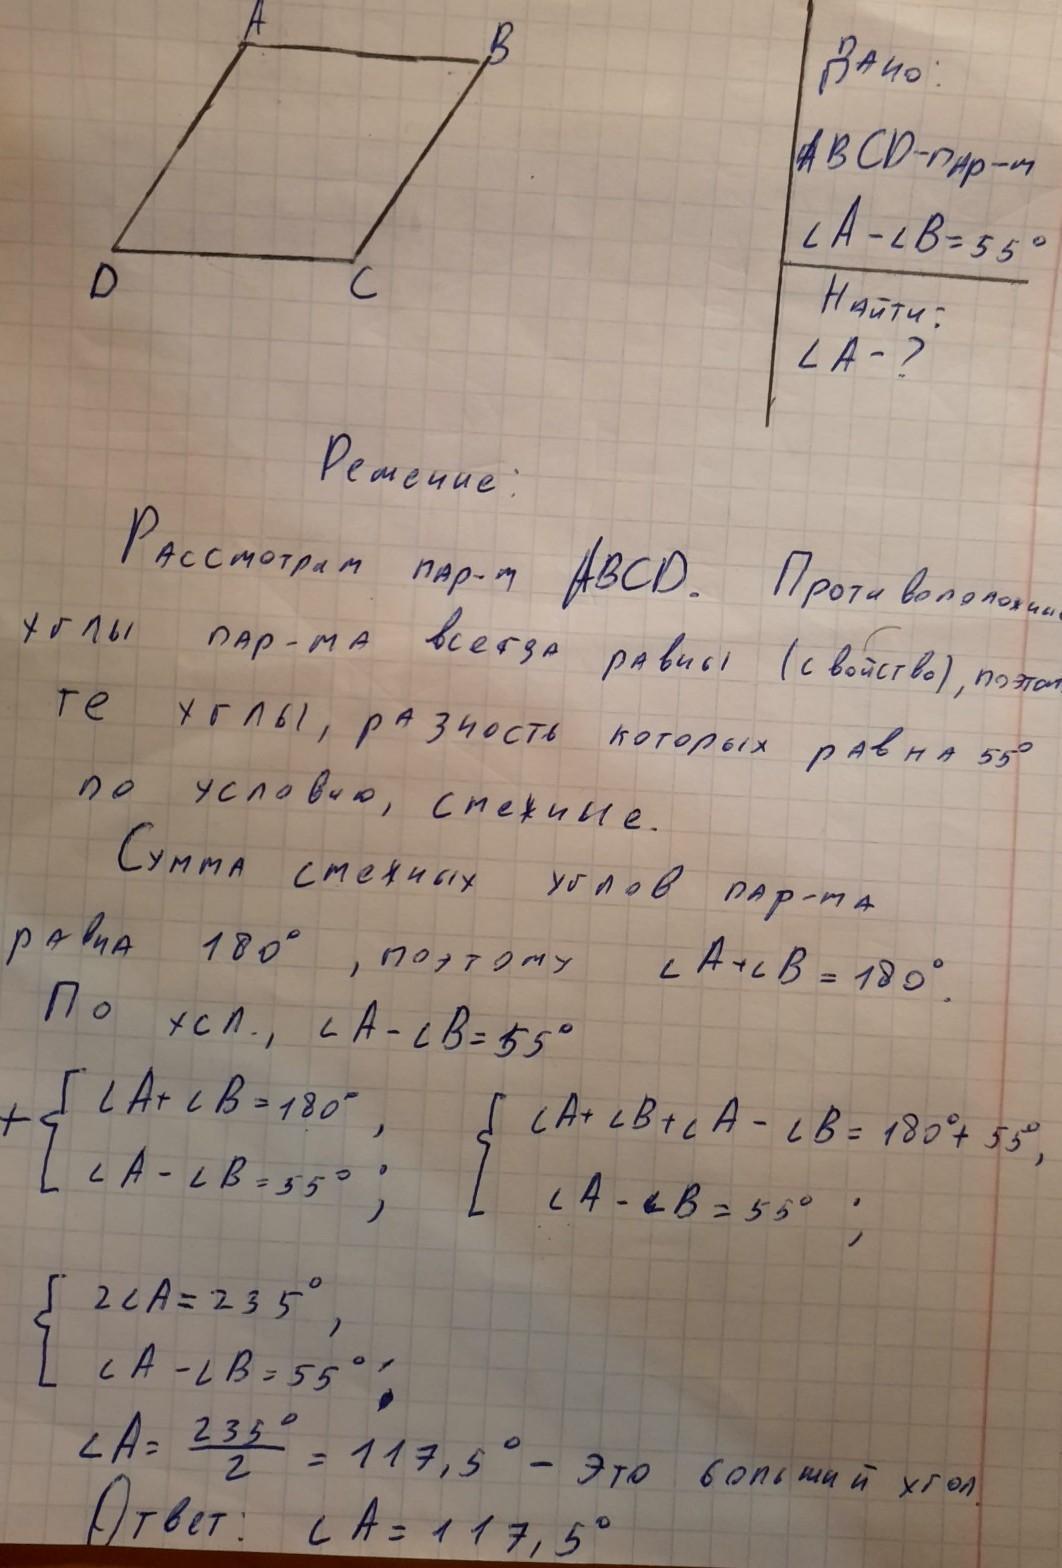 A
B
D
C
Дано:
ABCD-пар-м
∠A-∠B=55°
Найти:
∠A-?
Решение:
Рассмотрим пар-м ABCD. Противоположные
углы пар-ма всегда равны (свойство), поэтом
те углы, разность которых равна 55°
по условию, смежные.
Сумма смежных углов пар-ма
равна 180°, поэтому ∠A+∠B=180°.
По усл., ∠A-∠B=55°
+{ ∠A+∠B=180°, { ∠A+∠B+∠A-∠B=180°+55°,
∠A-∠B=55°; ∠A-∠B=55°;
{ 2∠A=235°,
∠A-∠B=55°;
∠A=235°/2=117,5° - это больший угол.
Ответ: ∠A=117,5°